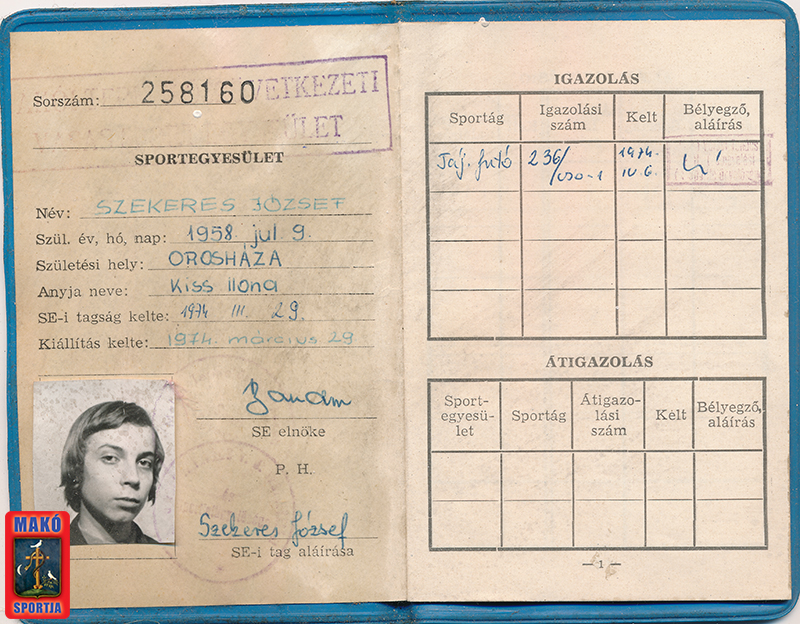 Sorszám: 258160
VETKEZETI
ÜLET
SPORTEGYESÜLET
Név: SZEKERES JÓZSEF
Szül. év, hó, nap: 1958. jul 9.
Születési hely: OROSHÁZA
Anyja neve: Kiss Ilona
SE-i tagság kelte: 1974 III. 29.
Kiállítás kelte: 1974. március 29
SE elnöke
P. H.
Szekeres József
SE-i tag aláírása
MAKÓ
SPORTJA
IGAZOLÁS
Sportág Igazolási szám Kelt Bélyegző, aláírás
Táj. futó 236/ 1974.
IV. 6.
ÁTIGAZOLÁS
Sport-egyesü-let Sportág Átigazo-lási szám Kelt Bélyegző, aláírás
— 1 —